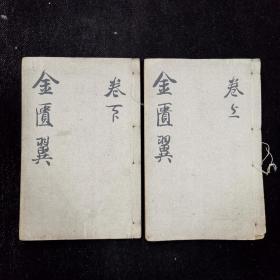 卷上
金匱翼
卷下
金匱翼